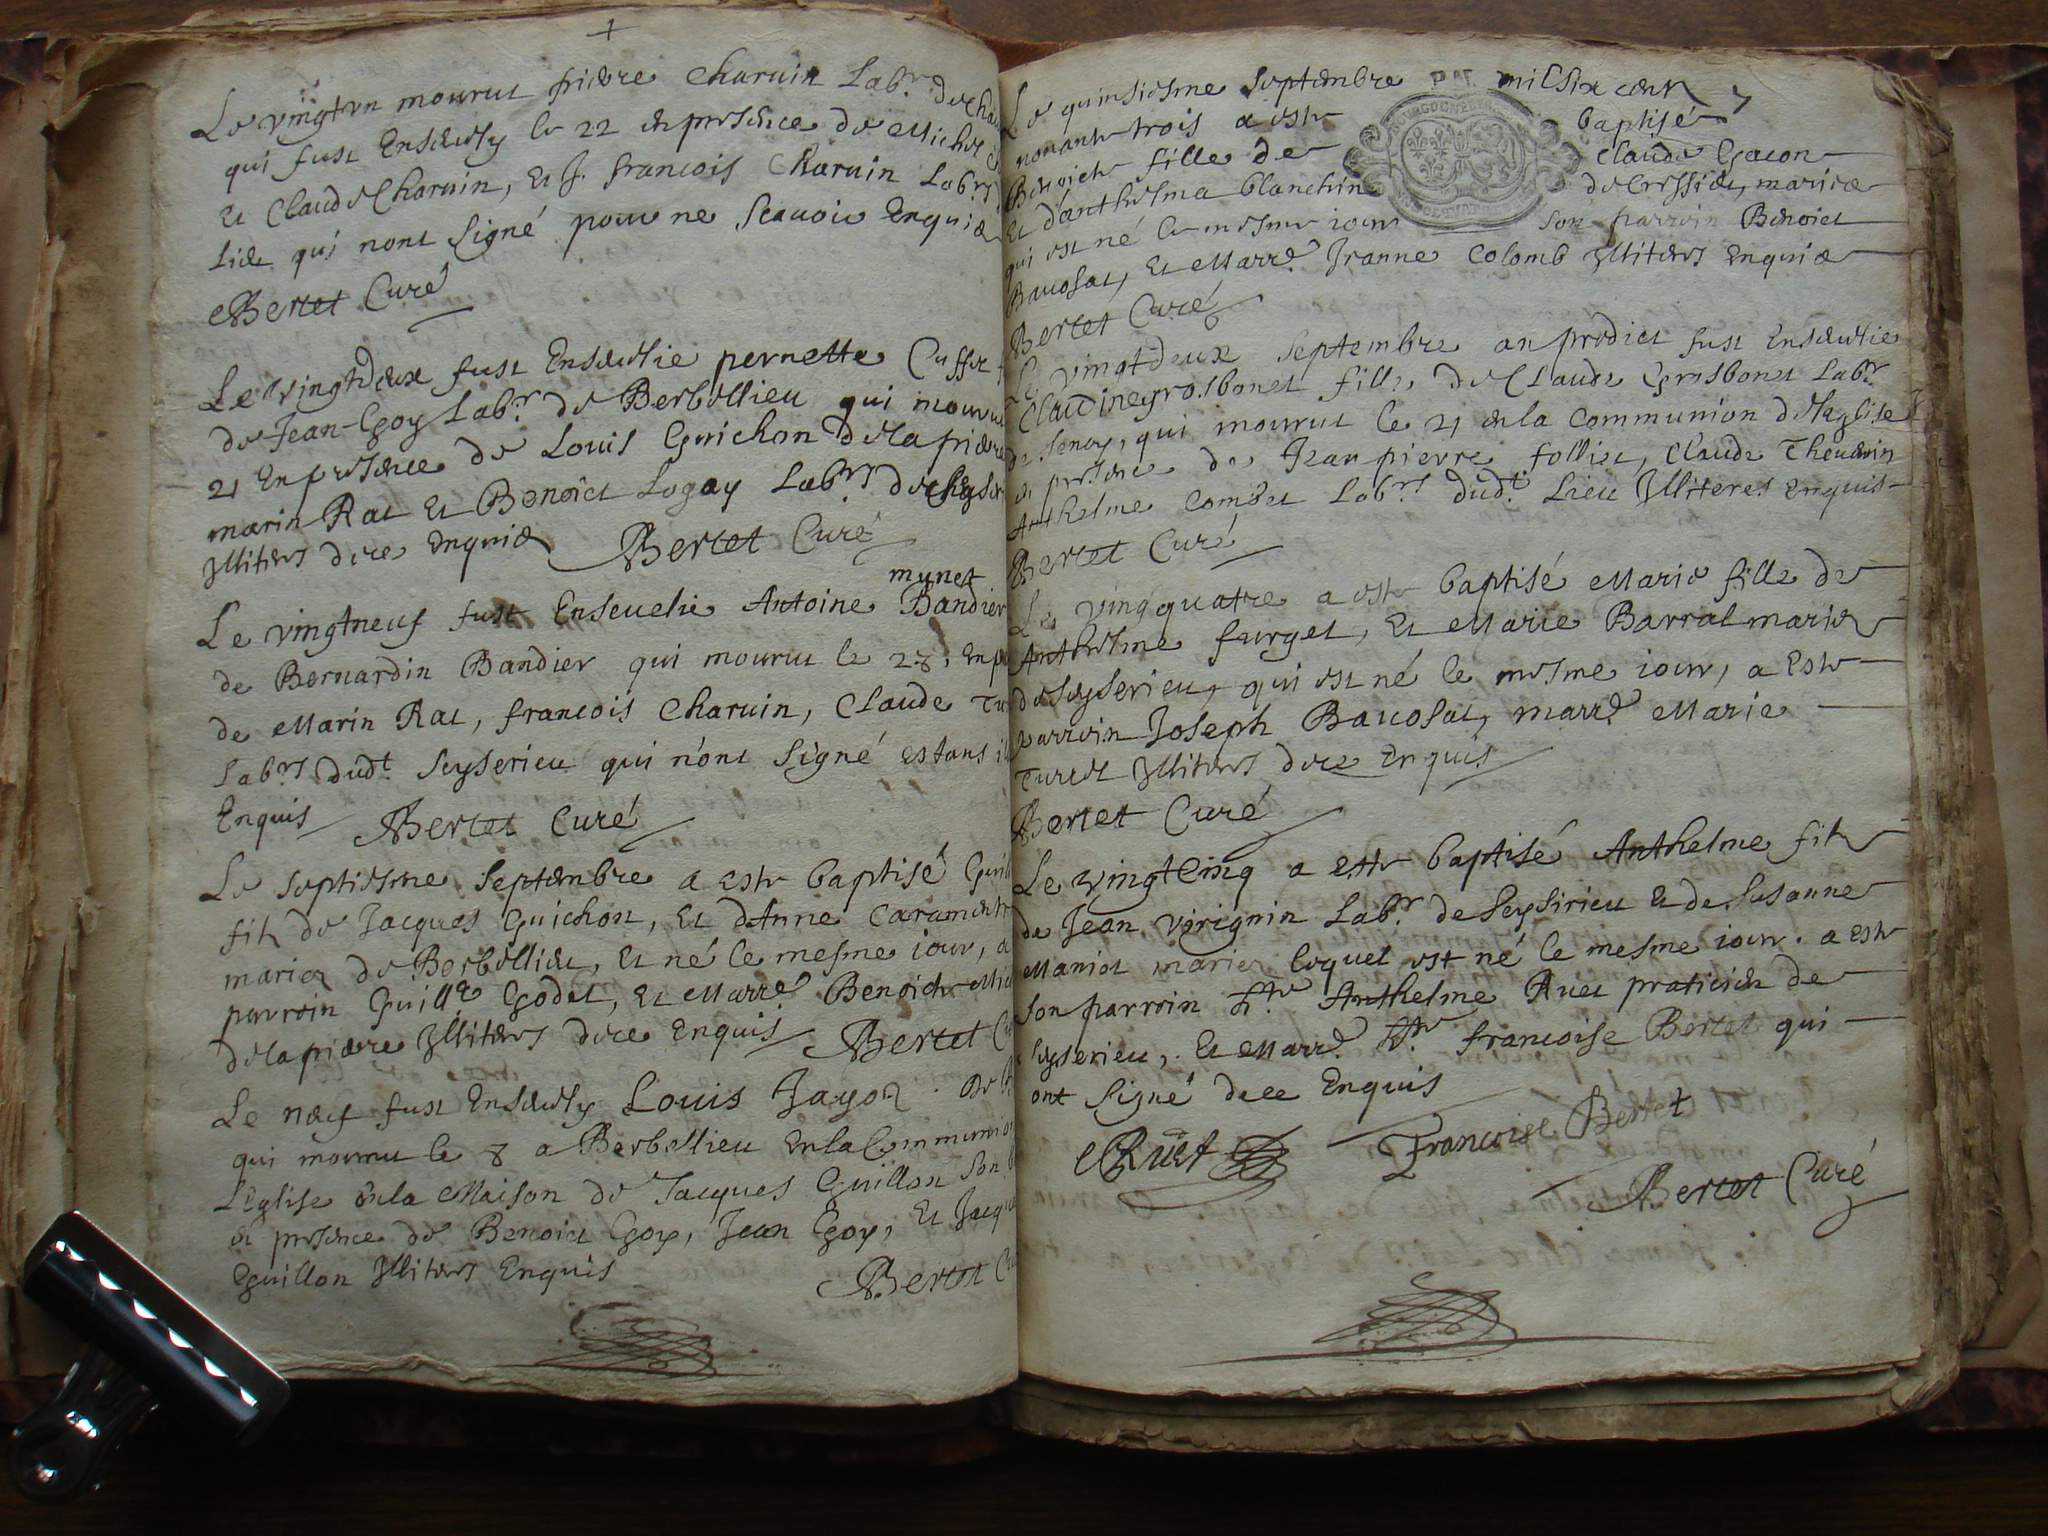 Le vingtvn mourut Charuin Lab.r de
qui fust Enseuely le 22 en presence de Michel
et Claude Charuin, et J. francois Charuin Lab.rs
Lieu qui nont signé pour ne scauoir Enquis
Bertet Curé
Le vingtdeux fust Enseuelie pernette
de Jean Goy Lab.r de Berbellieu qui mourut
21 En presence de Louis Guichon delapierre
marin Rat et Benoict Lab.rs
Illiters de ce Enquis Bertet Curé
munet
Le vingtneuf fust Enseuelie Antoine Bandier
de Bernardin Bandier qui mourut le 28, En
de Marin Rat, francois Charuin, Claude
Lab.rs dud.t Seyserieu qui n'ont signé estans
Enquis Bertet Curé
Le septiesme Septembre a este baptisé
fils de Jacques Guichon, et d'Anne
mariez de Berbellieu, et né le mesme iour, a
parroin Guill.e Godet, et Marr.e Benoicte
delapierre Illiters de ce Enquis Bertet
Le neuf fust Enseuely Louis Jayoz. De
qui mourut le 8 a Berbellieu En la Communion
L'Eglise en la Maison de Jacques Guillon son
et presence de Benoict Goy, Jean Goy, et Jacques
Guillon Illiters Enquis Bertet
Le quinsiesme Septembre mil six cent
nonante trois a este baptisé
Benoicte fille de Claude Gacon
et d'anthelma blanchin de Cressieu, mariez
qui est né le mesme iour son parroin Benoict
Bauosat, et Marr.e Jeanne Colomb Illiters Enquis
Bertet Curé
Le vingtdeux Septembre an predict fust Enseuelie
Claudine grosbonet fille de Claude Grosbonet Lab.r
de qui mourut le 21 en la Communion de l'Eglise
et presence de Jean pierre follier, Claude Theuenin
Anthelme Combet Lab.rs dud.t Lieu Illiteres enquis
Bertet Curé
Le vingquatre a este baptisé Marie fille de
Anthelme furget, et Marie Barral mariez
de Seyserieu, qui est né le mesme iour, a Este
parroin Joseph Bauosat, marr.e Marie
Turrel Illiters de ce Enquis
Bertet Curé
Le vingtcinq a este baptisé Anthelme fils
de Jean virignin Lab.r de Seysirieu et de Susanne
Maniot mariez lequel est né le mesme iour. a este
son parroin Anthelme Ruet praticien de
Seyserieu, et Marr.e francoise Bertet qui
ont signé de ce Enquis
Ruet Francoise Bertet
Bertet Curé